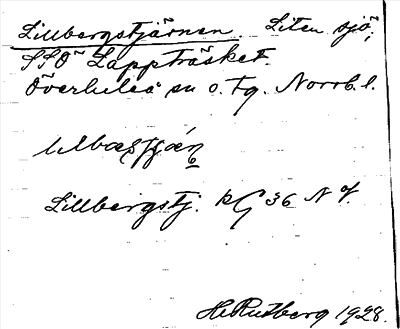 Lillbergstjärnen. Liten sjö,
SSO Lappträsket.
Överluleå sn o. tg. Norrb. l.
Lillbergstj. RG 36 NV.
H. Rutberg 1928.